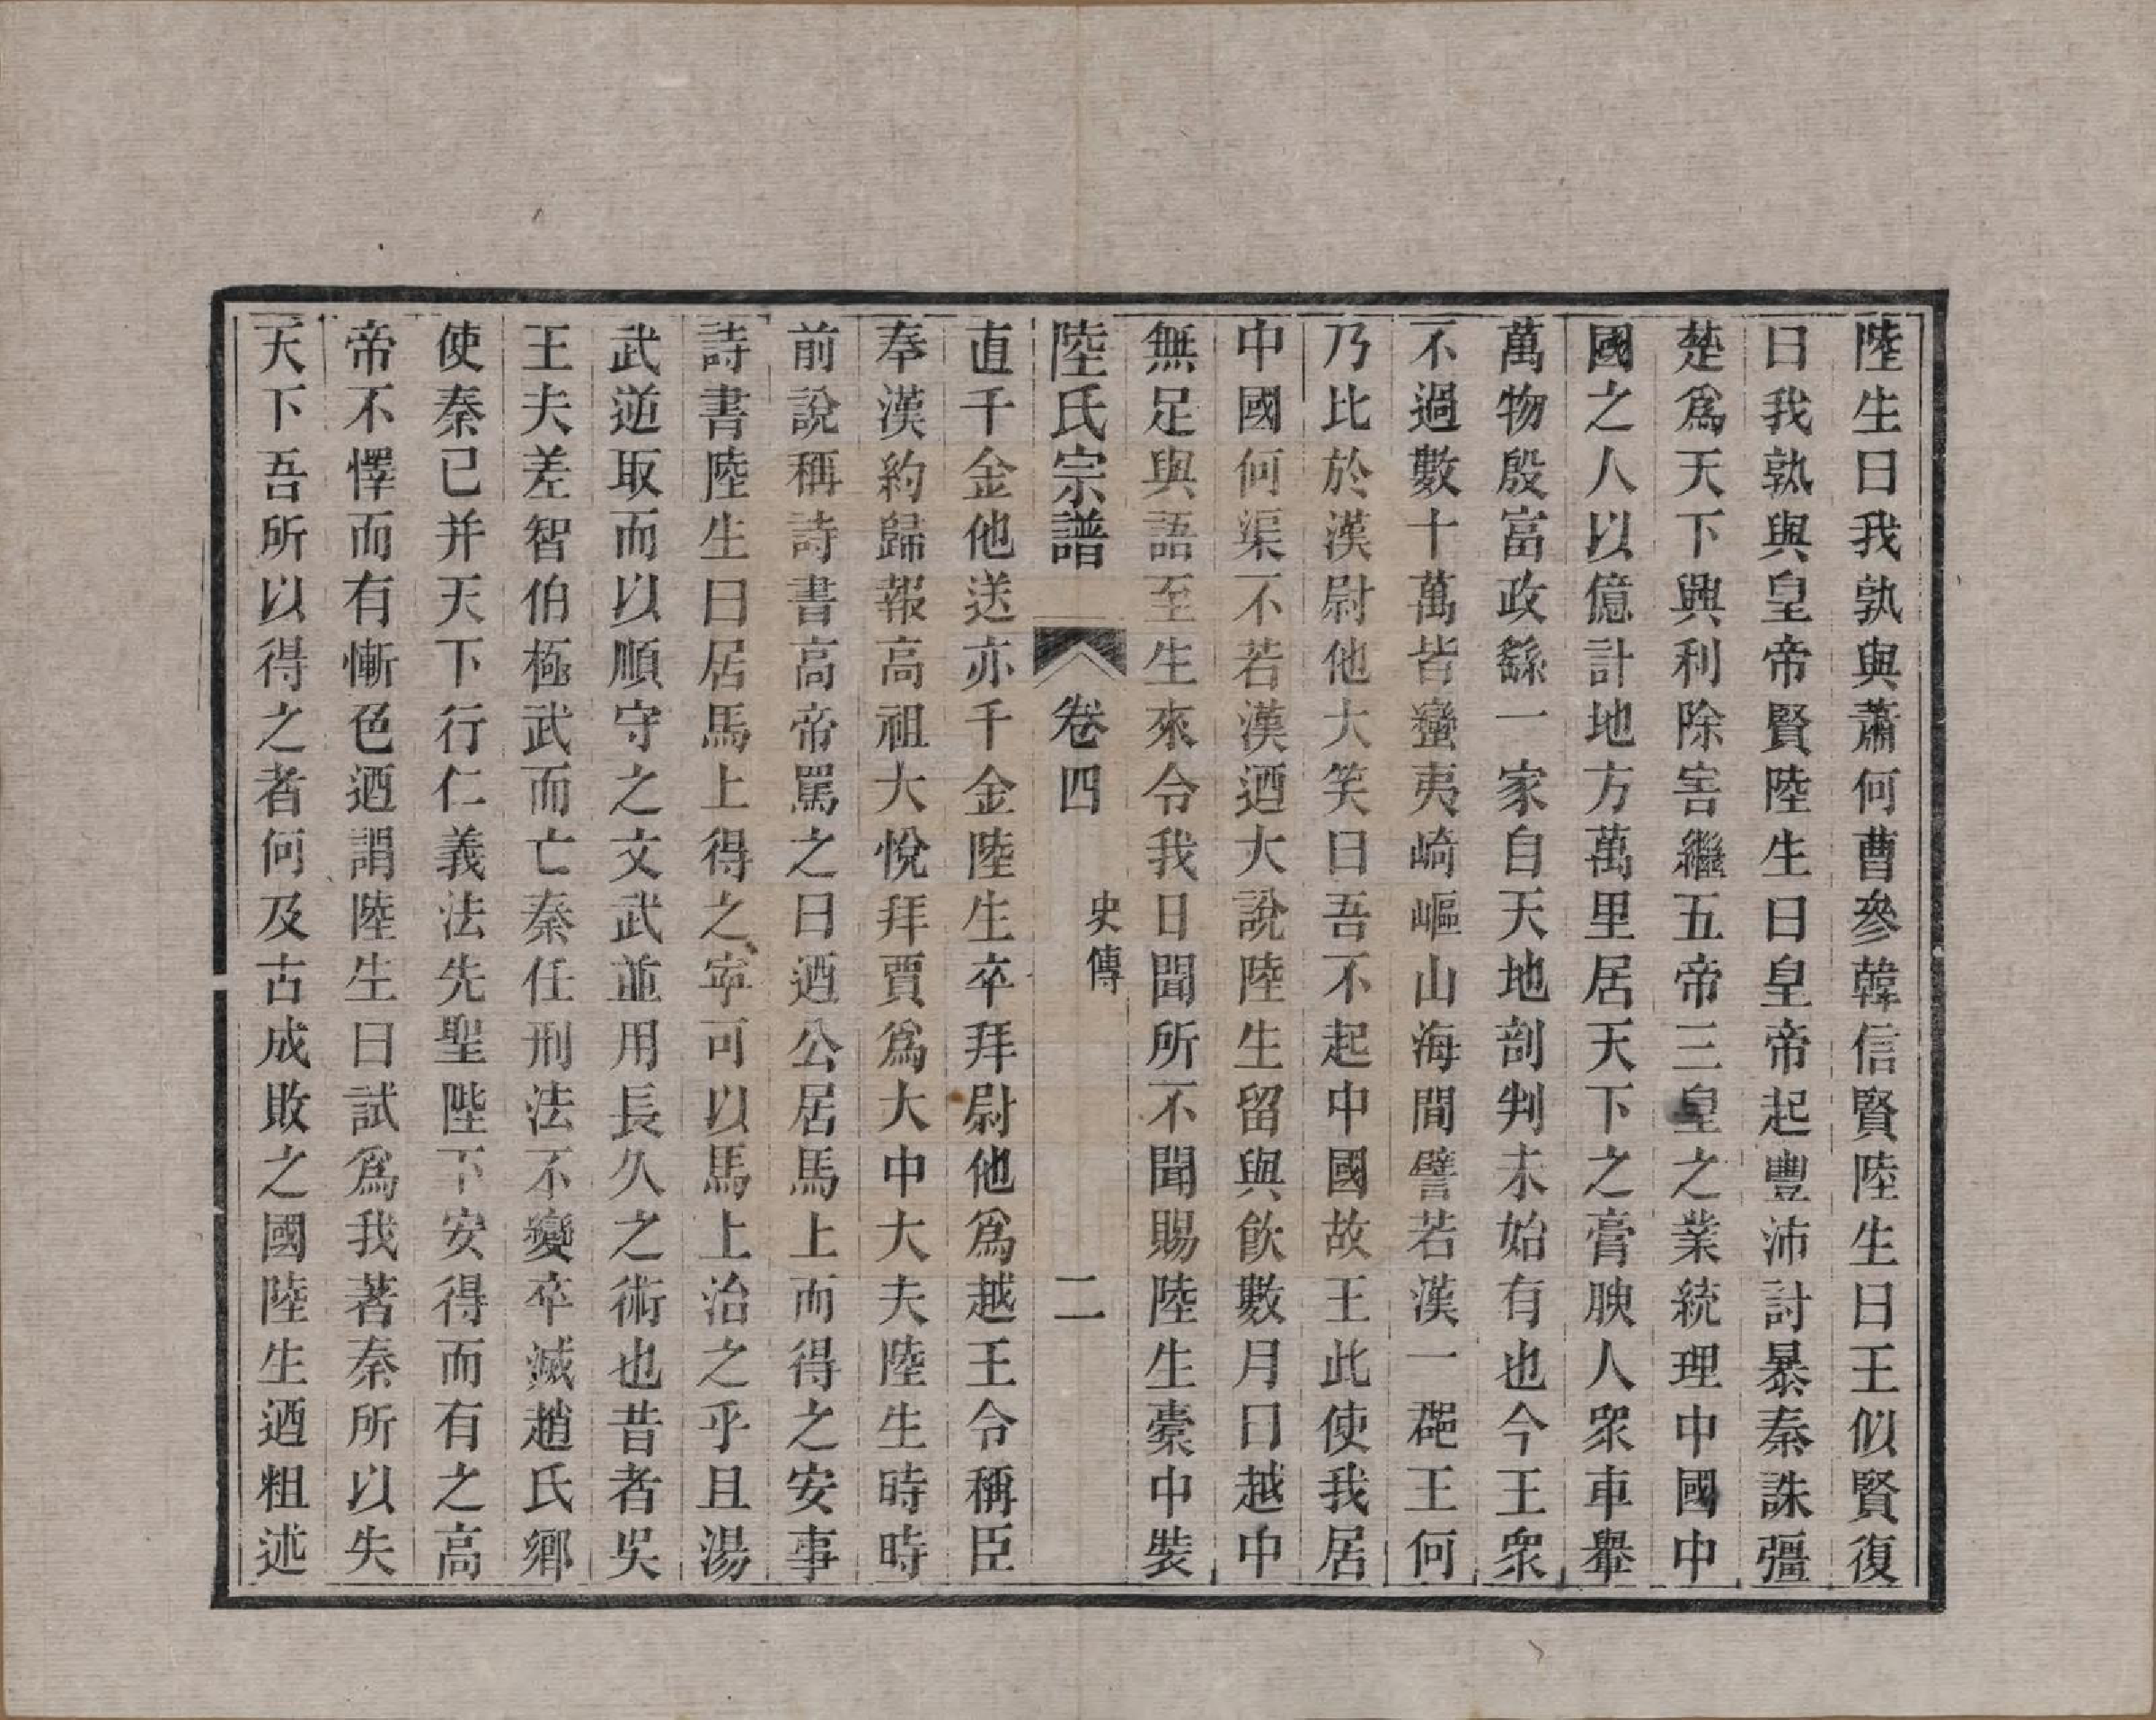 陸生曰我孰與蕭何曹參韓信賢陸生曰王似賢復
曰我孰與皇帝賢陸生曰皇帝起豐沛討暴秦誅彊
楚爲天下興利除害繼五帝三皇之業統理中國中
國之人以億計地方萬里居天下之膏腴人眾車轝
萬物殷富政繇一家自天地剖判未始有也今王眾
不過數十萬皆蠻夷崎嶇山海間譬若漢一郡王何
乃比於漢尉他大笑曰吾不起中國故王此使我居
中國何渠不若漢迺大說陸生留與飲數月曰越中
無足與語至生來令我日聞所不聞賜陸生橐中裝
陸氏宗譜 卷四 史傳 二
直千金他送亦千金陸生卒拜尉他爲越王令稱臣
奉漢約歸報高祖大悅拜賈爲大中大夫陸生時時
前說稱詩書高帝罵之曰迺公居馬上而得之安事
詩書陸生曰居馬上得之寧可以馬上治之乎且湯
武逆取而以順守之文武並用長久之術也昔者吳
王夫差智伯極武而亡秦任刑法不變卒滅趙氏鄉
使秦已并天下行仁義法先聖陛下安得而有之高
帝不懌而有慚色迺謂陸生曰試爲我著秦所以失
天下吾所以得之者何及古成敗之國陸生迺粗述